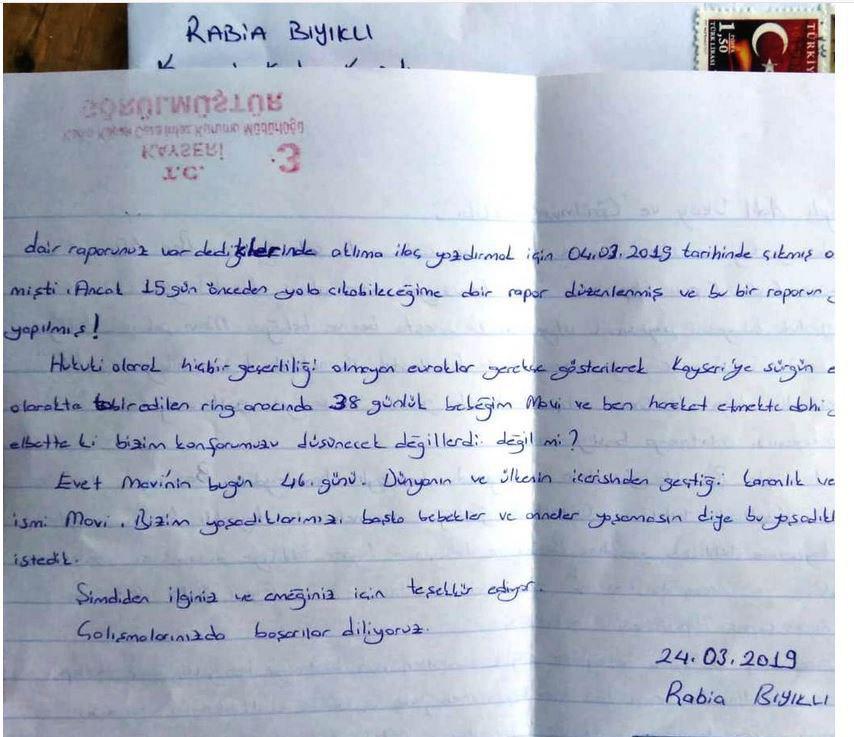 RABİA BIYIKLI
1,50
TÜRK LİRASI
TÜRKİY
T.C.
KAYSERİ 3
Kadın Kapalı Ceza İnfaz Kurumu Müdürlüğü
GÖRÜLMÜŞTÜR
dair raporunuz var dediklerinde aklıma ilaç yazdırmak için 04.03.2019 tarihinde çıkmış o
mişti. Ancak 15 gün önceden yola çıkabileceğime dair rapor düzenlenmiş ve bu bir raporun
yapılmış!
Hukuki olarak hiçbir geçerliliği olmayan evraklar gerekçe gösterilerek Kayseri'ye sürgün e
olarakta tabir edilen ring aracında 38 günlük bebeğim Mavi ve ben hareket etmekte dahi
elbette ki bizim konforumuzu düşünecek değillerdi değil mi?
Evet Mavi'nin bugün 46. günü. Dünyanın ve ülkenin içerisinden geçtiği karanlık ve
ismi Mavi. Bizim yaşadıklarımızı başka bebekler ve anneler yaşamasın diye bu yaşadıkl
istedik.
Şimdiden ilginiz ve emeğiniz için teşekkür ediyor.
Çalışmalarınızda başarılar diliyoruz.
24.03.2019
Rabia BIYIKLI